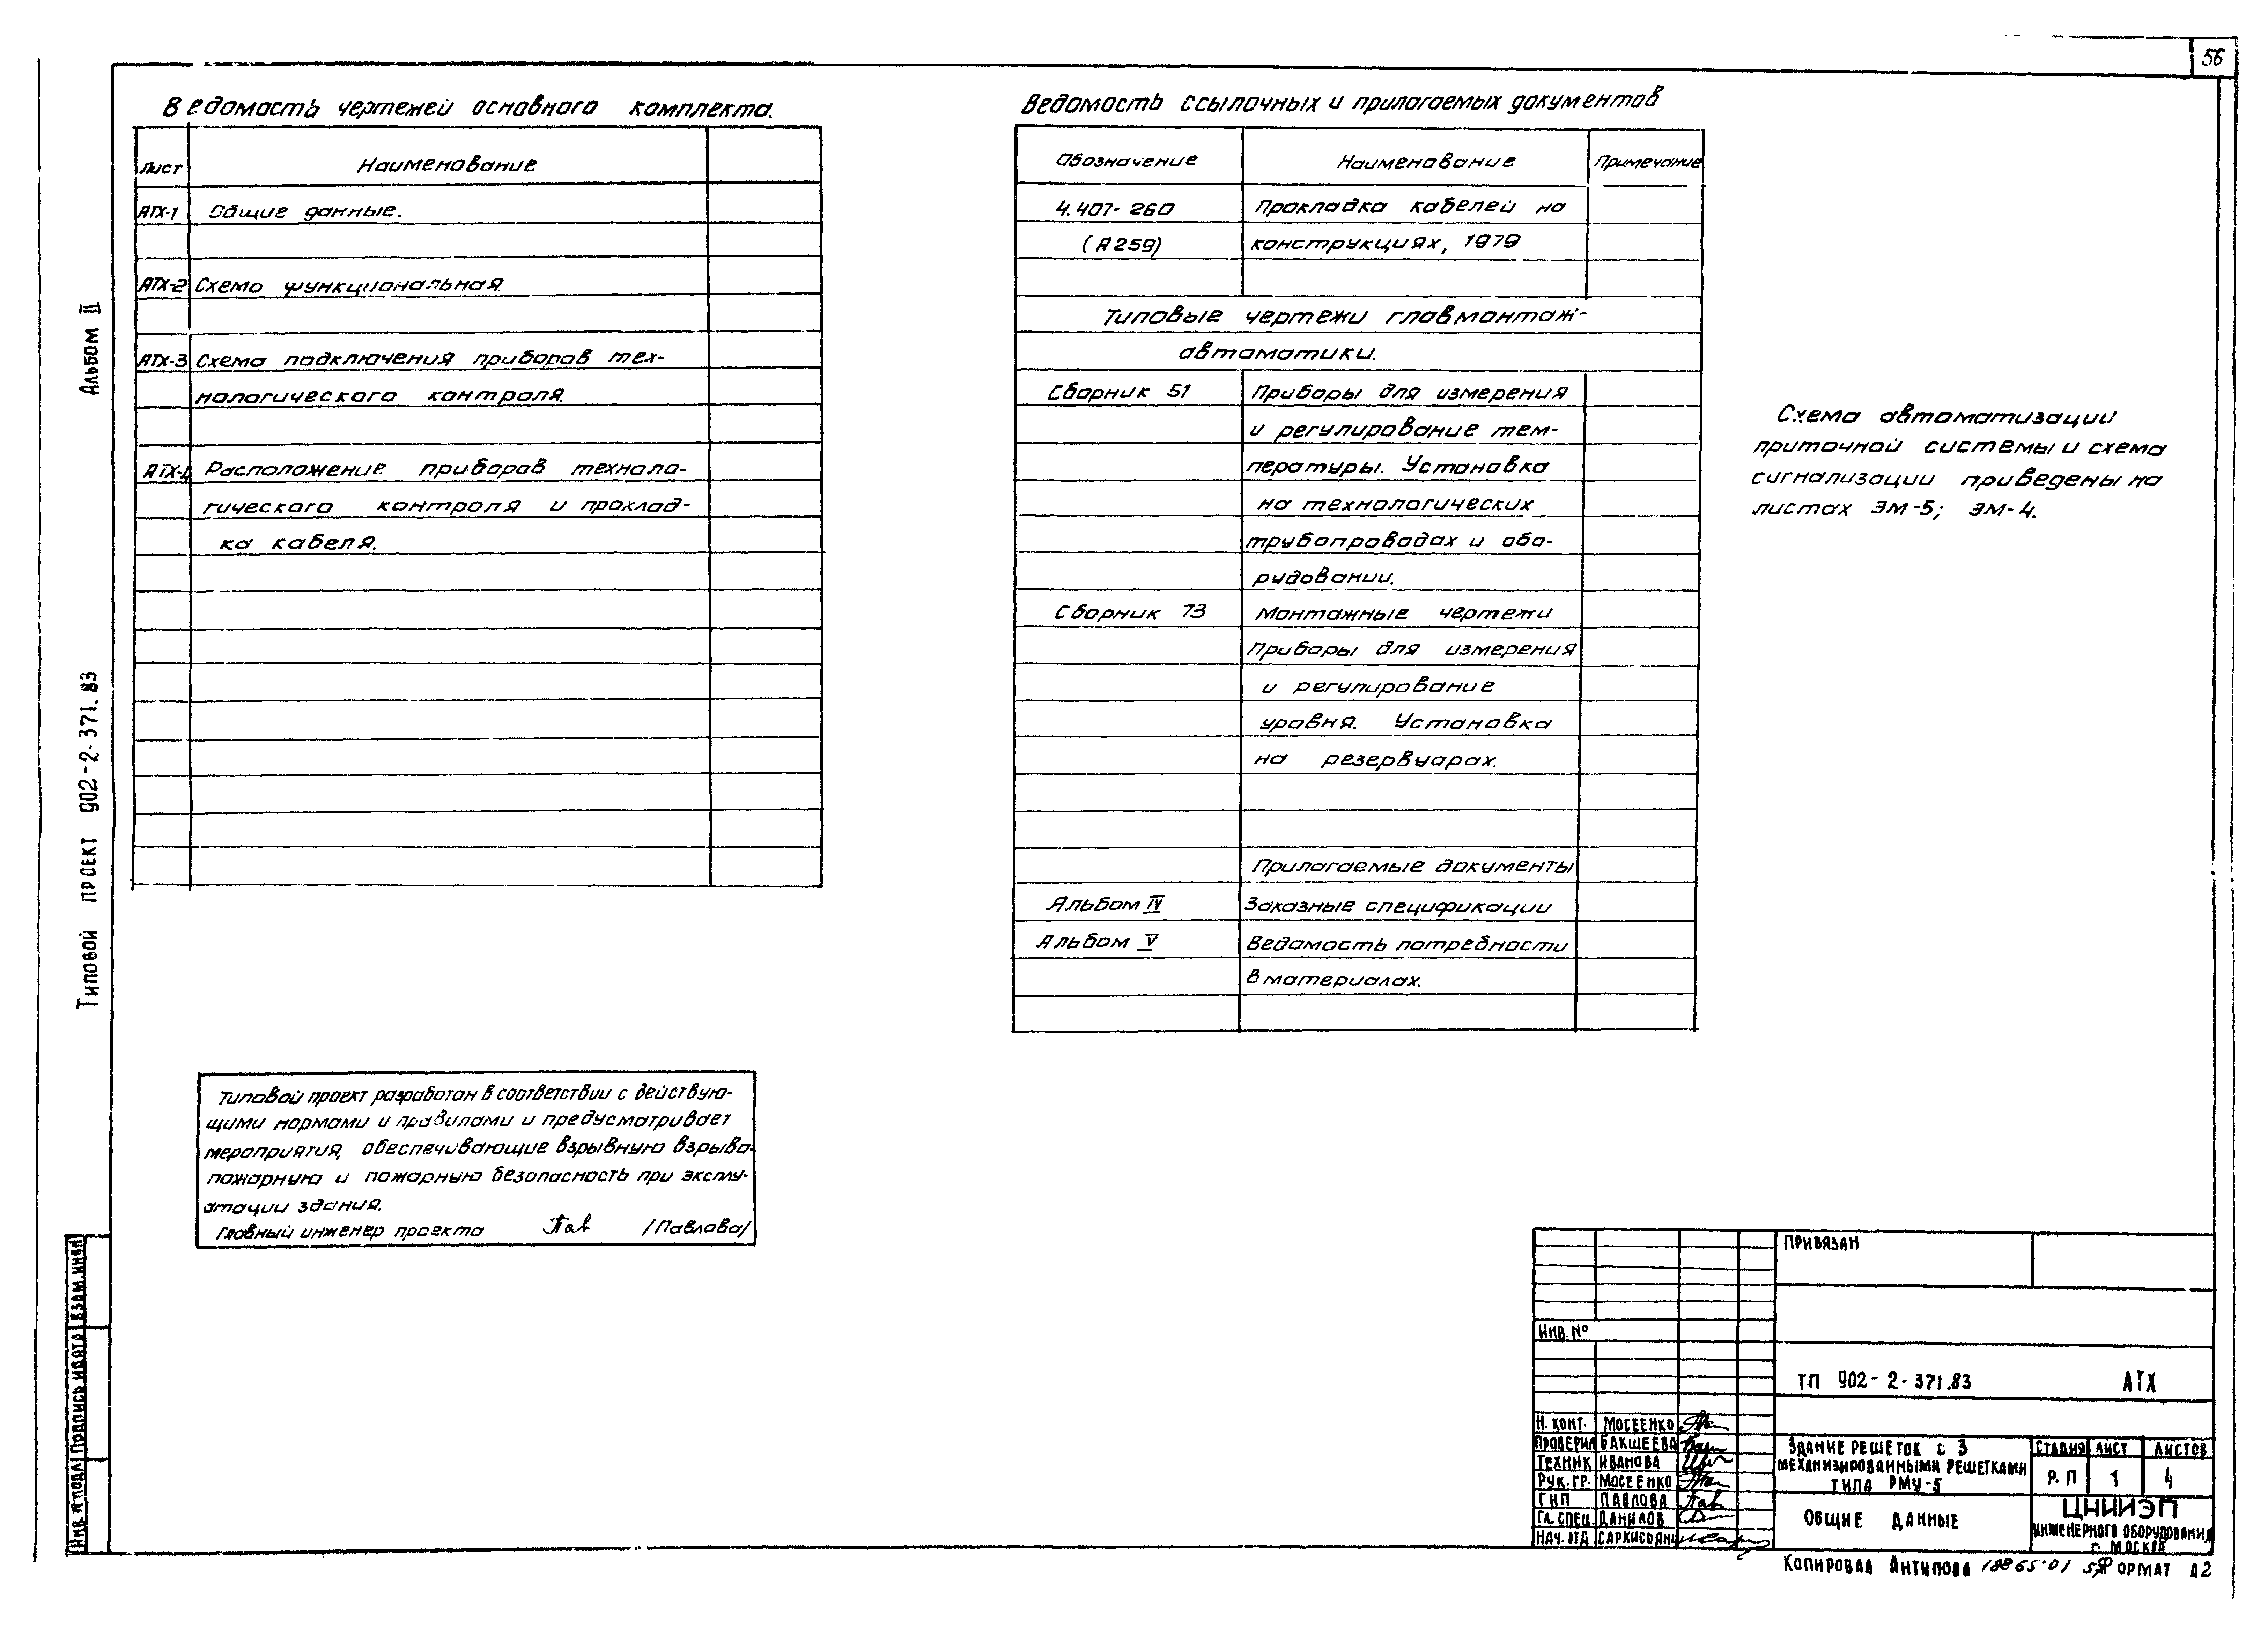 56
Ведомость чертежей основного комплекта.
Лист Наименование
АТХ-1 Общие данные.
АТХ-2 Схема функциональная.
АТХ-3 Схема подключения приборов тех-
нологического контроля.
АТХ-4 Расположение приборов техноло-
гического контроля и проклад-
ка кабеля.
Ведомость ссылочных и прилагаемых документов
Обозначение Наименование Примечание
4.407-260 Прокладка кабелей на
(А259) конструкциях, 1979
Типовые чертежи главмонтаж-
автоматики.
Сборник 51 Приборы для измерения
и регулирование тем-
пературы. Установка
на технологических
трубопроводах и обо-
рудовании.
Сборник 73 Монтажные чертежи
Приборы для измерения
и регулирование
уровня. Установка
на резервуарах.
Прилагаемые документы
Альбом IV Заказные спецификации
Альбом V Ведомость потребности
в материалах.
Схема автоматизации
приточной системы и схема
сигнализации приведены на
листах ЭМ-5; ЭМ-4.
Альбом II
Типовой проект 902-2-371.83
Типовой проект разработан в соответствии с действую-
щими нормами и правилами и предусматривает
мероприятия, обеспечивающие взрывную взрыво-
пожарную и пожарную безопасность при эксплу-
атации здания.
Главный инженер проекта Пав /Павлова/
Взам.инв.№
Подпись и дата
Инв.№ подл.
Привязан
Инв. №
ТП 902-2-371.83 АТХ
Н. конт. Мосеенко
Проверил Бакшеева
Техник Иванова
Рук. гр. Мосеенко
ГИП Павлова Пав
Гл. спец. Данилов
Нач. отд Саркисьянц
Здание решеток с 3
механизированными решетками
типа РМУ-5
Стадия Лист Листов
Р.П 1 4
Общие данные
ЦНИИЭП
инженерного оборудования
г. Москва
Копировал Антипова 18865-01 Формат А2